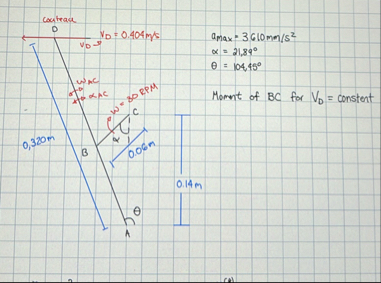 contreau
D
V_D = 0.404 m/s
V_D →
ω_AC
α_AC
ω = 30 RPM
C
α
B
0,320m
0.06m
0.14 m
θ
A
a_max = 3610 mm/s²
α = 21,89°
θ = 104,45°
Moment of BC for V_D = constent